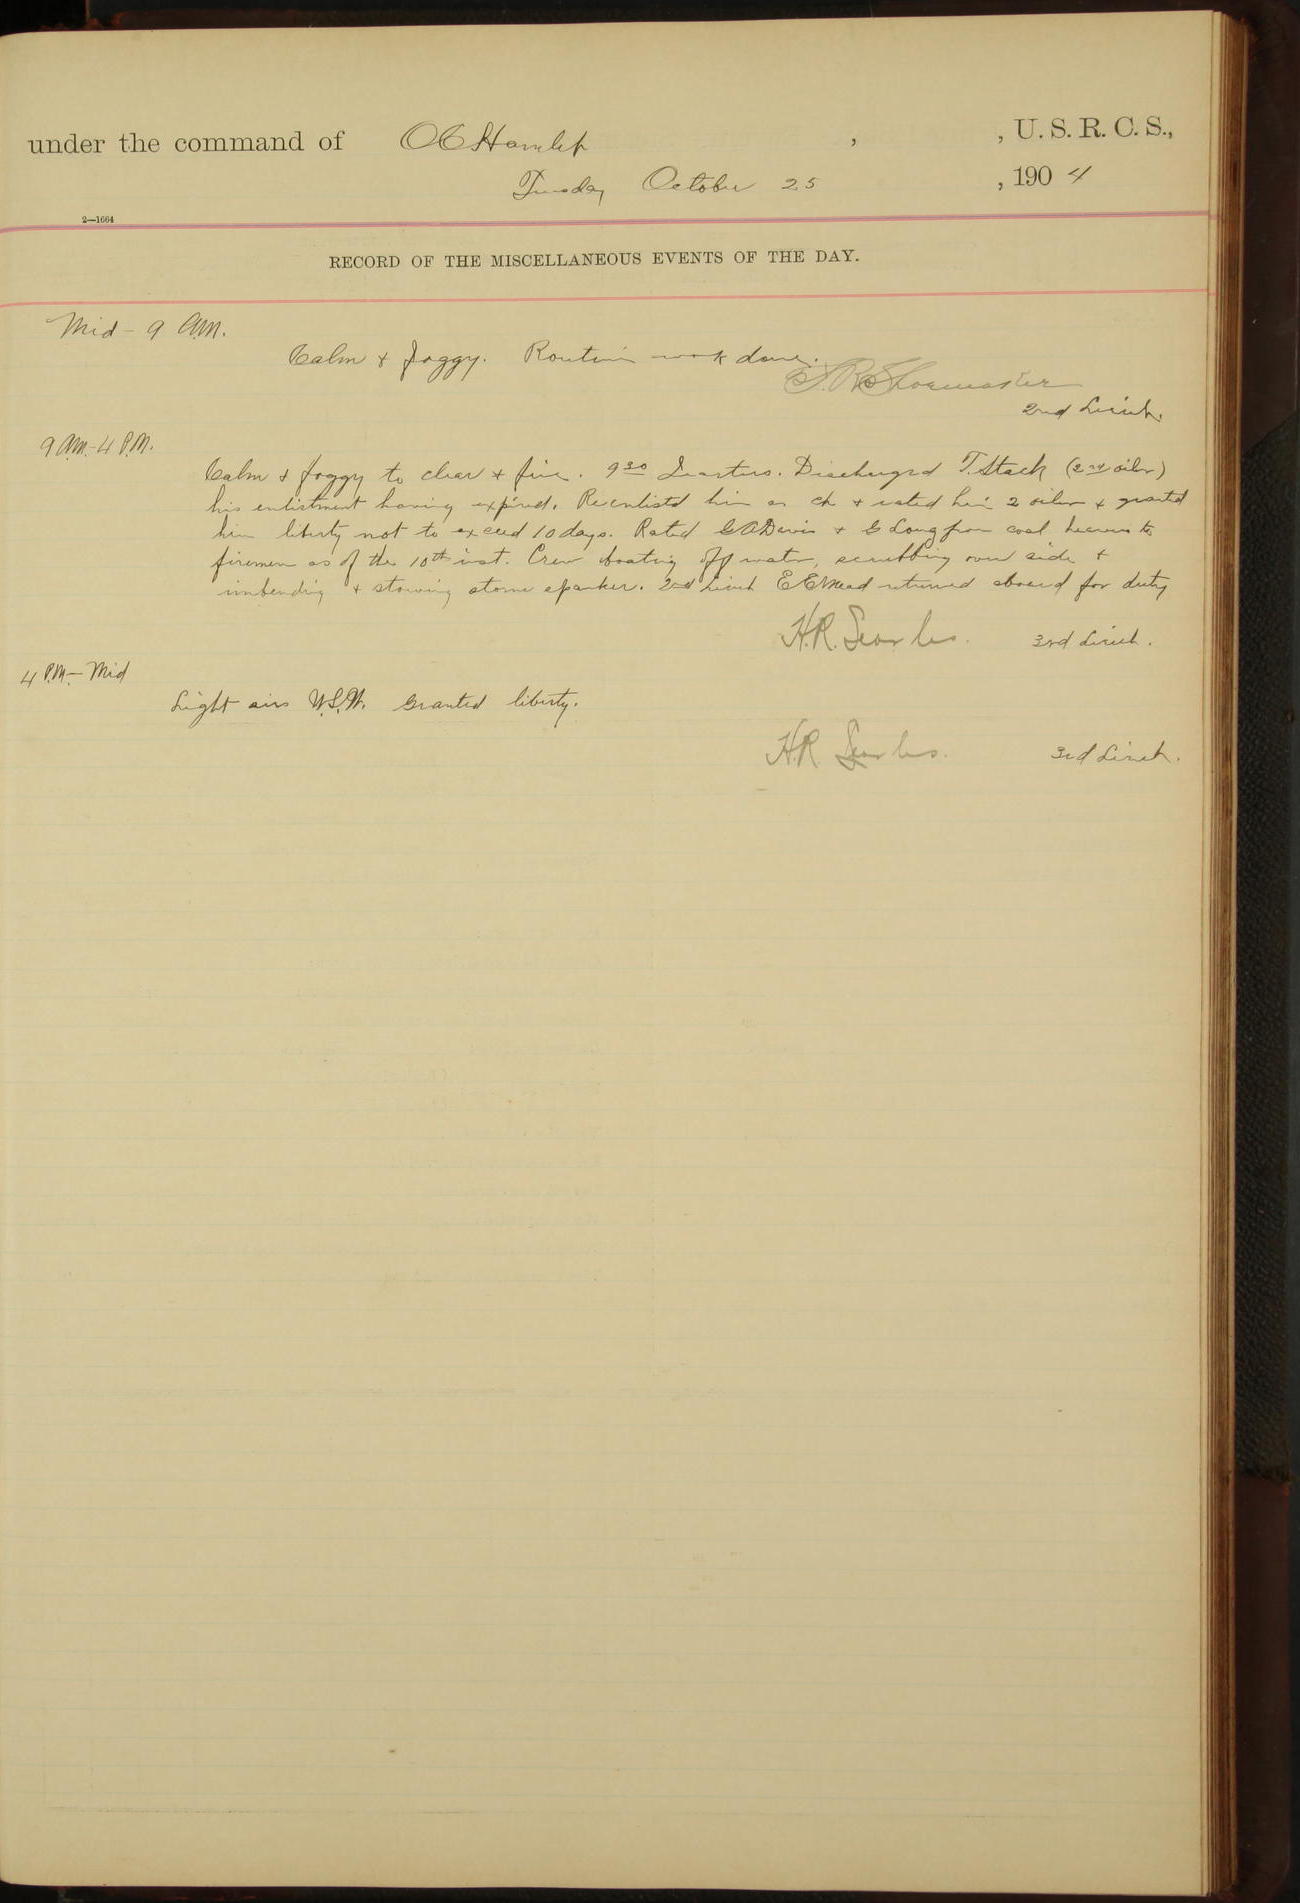 under the command of O C Hamlet , , U. S. R. C. S.,
Tuesday October 25 , 1904
2—1664
RECORD OF THE MISCELLANEOUS EVENTS OF THE DAY.
Mid - 9 A.M.
Calm & foggy. Routine work done.
F. R. Shoemaker
2nd Lieut.
9 A.M. - 4 P.M.
Calm & foggy to clear & fine. 9 30 Quarters. Discharged T. Stack (2nd oiler)
his enlistment having expired. Reenlisted him as & rated him 2 oiler & granted
him liberty not to exceed 10 days. Rated G A Davis & G Long from coal heavers to
firemen as of the 10th inst. Crew boating off water, scrubbing over side &
unbending & stowing storm spanker. 2nd Lieut E E Mead returned aboard for duty
H.R. Searles. 3rd Lieut.
4 P.M. - Mid
Light airs W.S.W. Granted liberty.
H.R. Searles. 3rd Lieut.